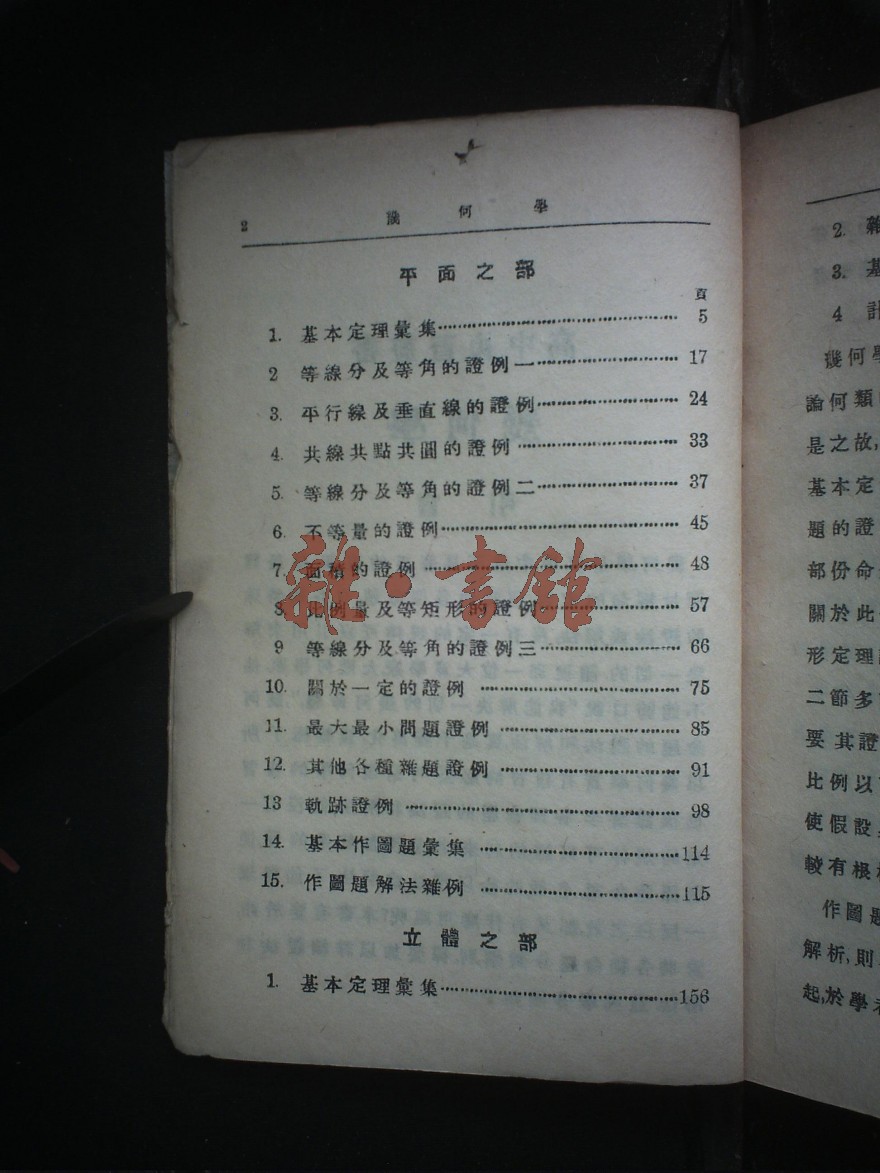 2 幾何學
平面之部
頁
1. 基本定理彙集 5
2 等線分及等角的證例一 17
3. 平行線及垂直線的證例 24
4. 共線共點共圓的證例 33
5. 等線分及等角的證例二 37
6. 不等量的證例 45
7. 面積的證例 48
8. 比例量及等矩形的證例 57
9 等線分及等角的證例三 66
10. 關於一定的證例 75
11. 最大最小問題證例 85
12. 其他各種雜題證例 91
13 軌跡證例 98
14. 基本作圖題彙集 114
15. 作圖題解法雜例 115
立體之部
1. 基本定理彙集 156
雜·書館
2. 雜
3. 基
4 計
幾何學
論何類
是之故,
基本定
題的證
部份命
關於此
形定理
二節多
要其證
比例以
使假設
較有根
作圖題
解析,則
起,於學